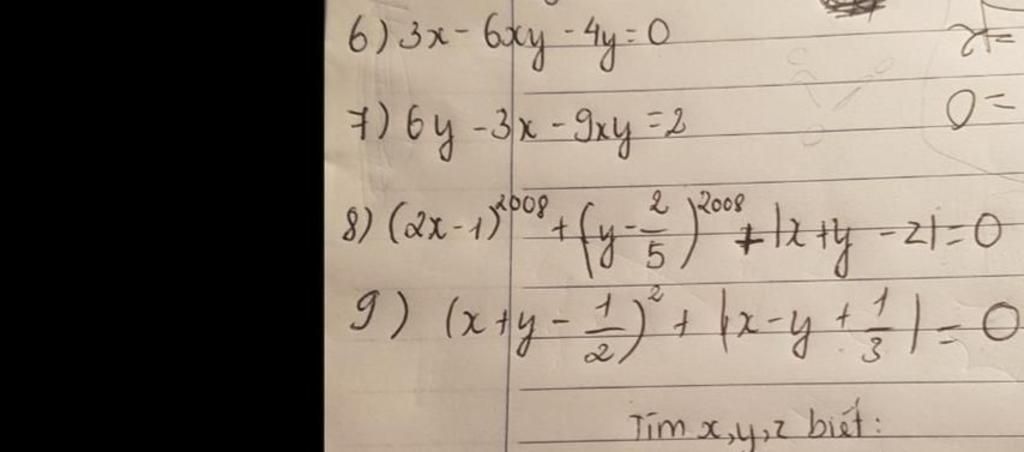 6) 3x - 6xy - 4y = 0
7) 6y - 3x - 9xy = 2
8) (2x - 1)^2008 + (y - 2/5)^2008 + |x + y - z| = 0
9) (x + y - 1/2)^2 + |x - y + 1/3| = 0
Tìm x, y, z biết:
x =
0 =